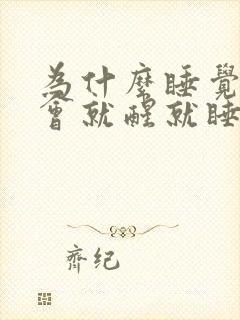 为什麼睡覺
會就醒就睡
齊纪